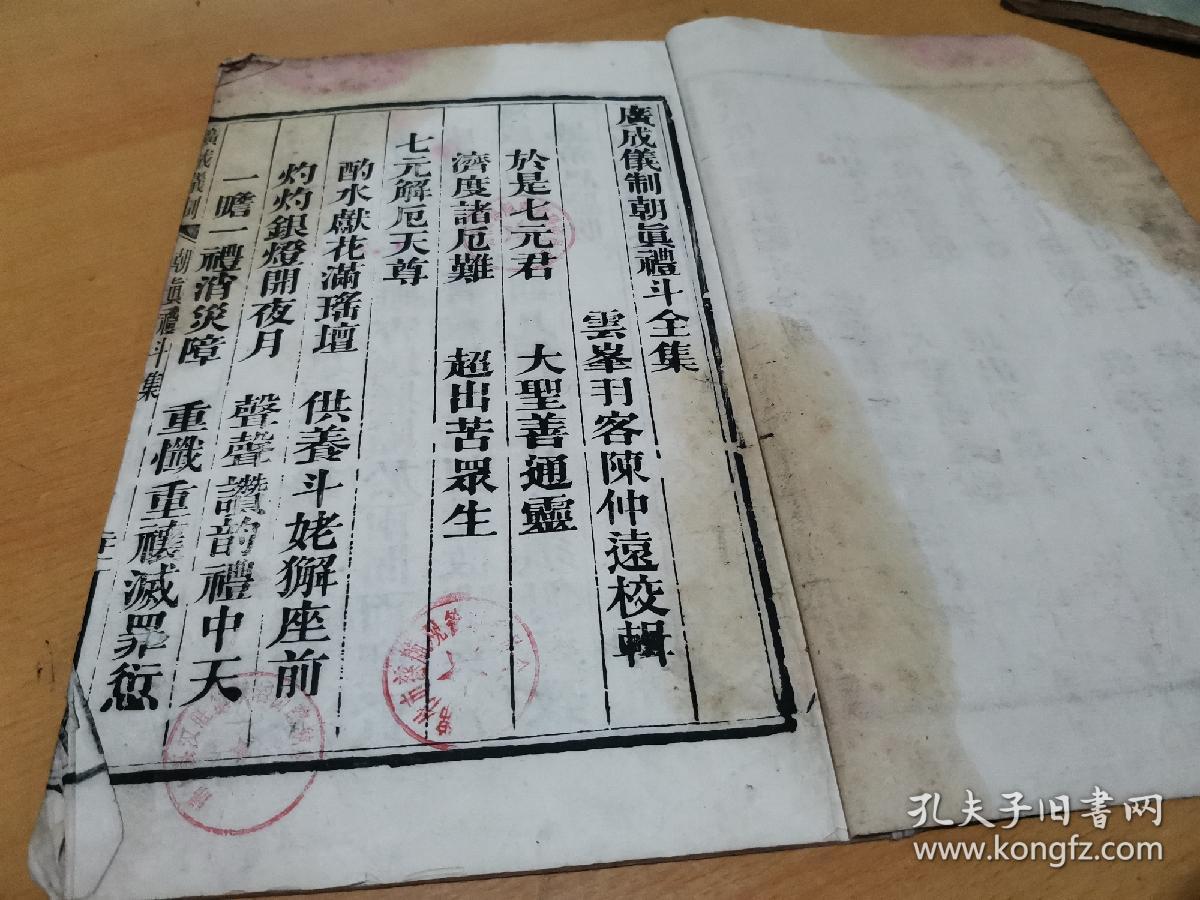 廣成儀制朝眞禮斗全集
雲峯羽客陳仲遠校輯
於是七元君 大聖善通靈
濟度諸厄難 超出苦眾生
七元解厄天尊
酌水獻花滿瑤壇 供養斗姥獬座前
灼灼銀燈開夜月 聲聲讚韵禮中天
一瞻一禮消災障 重懺重禳滅罪愆
廣成儀制 朝眞禮斗集
孔夫子旧书网
www.kongfz.com